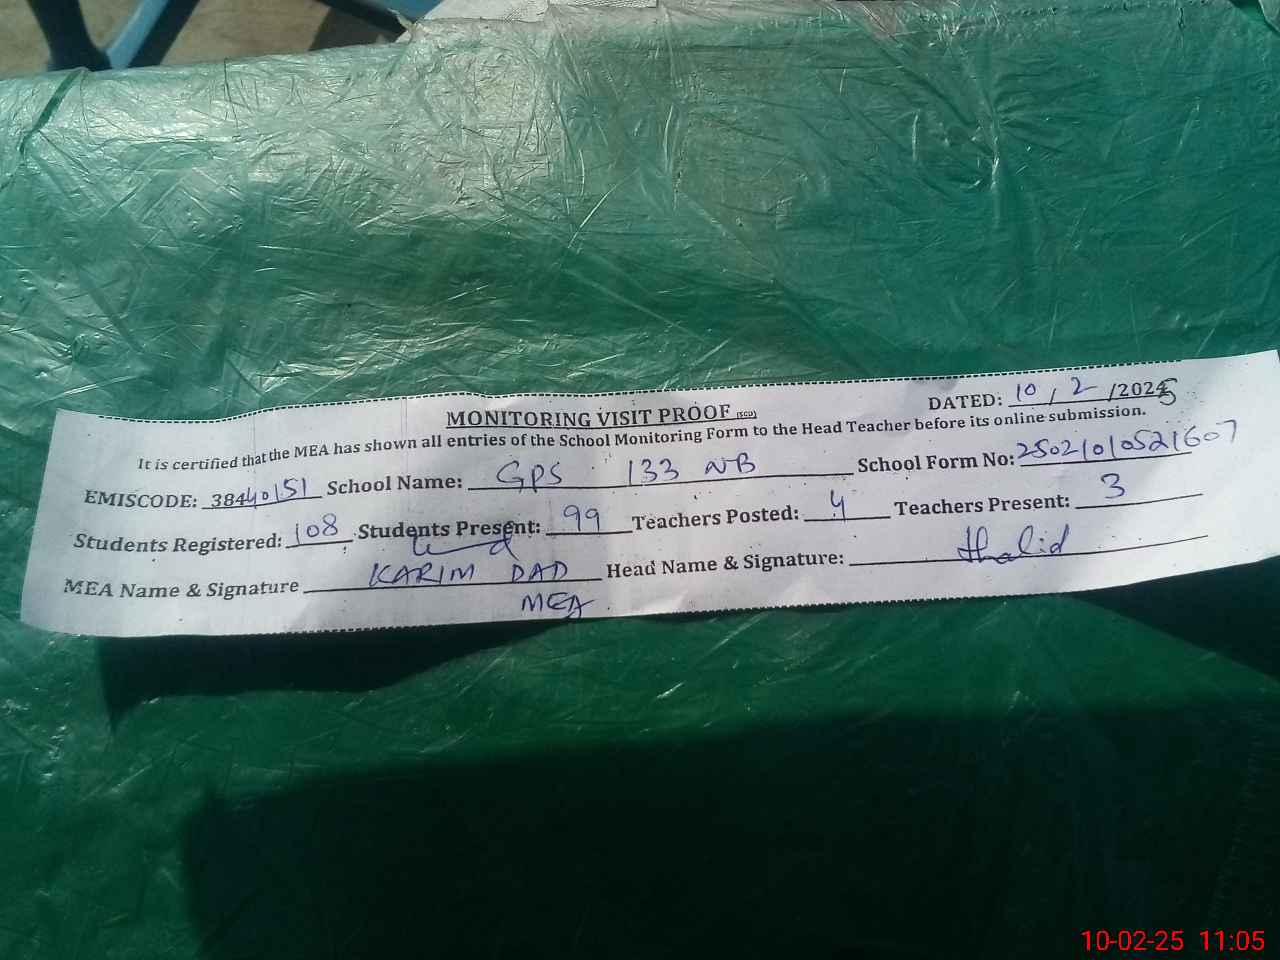 MONITORING VISIT PROOF (SCD)
DATED: 10/2/2025
It is certified that the MEA has shown all entries of the School Monitoring Form to the Head Teacher before its online submission.
EMISCODE: 38440151 School Name: GPS 133 NB School Form No: 25021010521607
Students Registered: 108 Students Present: 99 Teachers Posted: 4 Teachers Present: 3
MEA Name & Signature KARIM DAD Head Name & Signature:
MEA
10-02-25 11:05